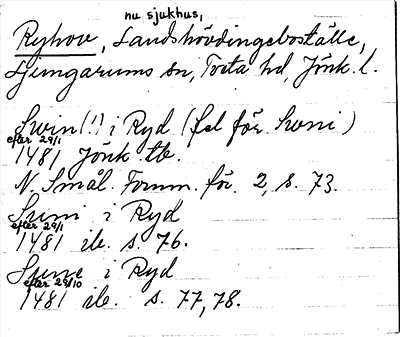 nu sjukhus,
Ryhov, Landshövdingeboställe,
Ljungarums sn, Tveta hd, Jönk. l.
Swin (!) i Ryd (fel för Swni)
efter 29/1
1481 Jönk. tb.
N. Smål. Fornm. för. 2, s. 73.
Suni i Ryd
efter 29/1
1481 ib. s. 76.
Sune i Ryd
efter 29/10
1481 ib. s. 77, 78.